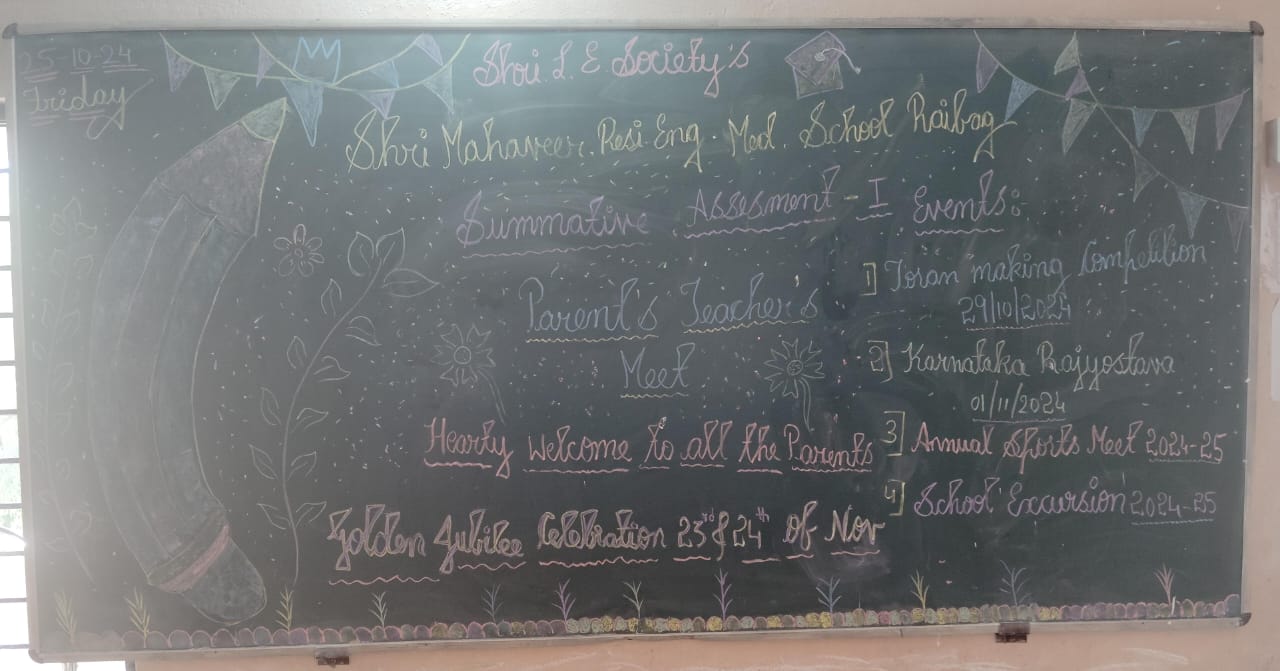 25-10-24
Friday
Shri L. E Society's
Shri Mahaveer. Resi. Eng. Med. School Raibag
Summative Assesment - I
Parent's Teacher's
Meet
Hearty Welcome to all the Parents
Golden Jubilee Celebration 23rd & 24th of Nov
Events:
1] Toran making Competition
29/10/2024
2] Karnataka Rajyostava
01/11/2024
3] Annual Sports Meet 2024-25
4] School Excursion 2024-25